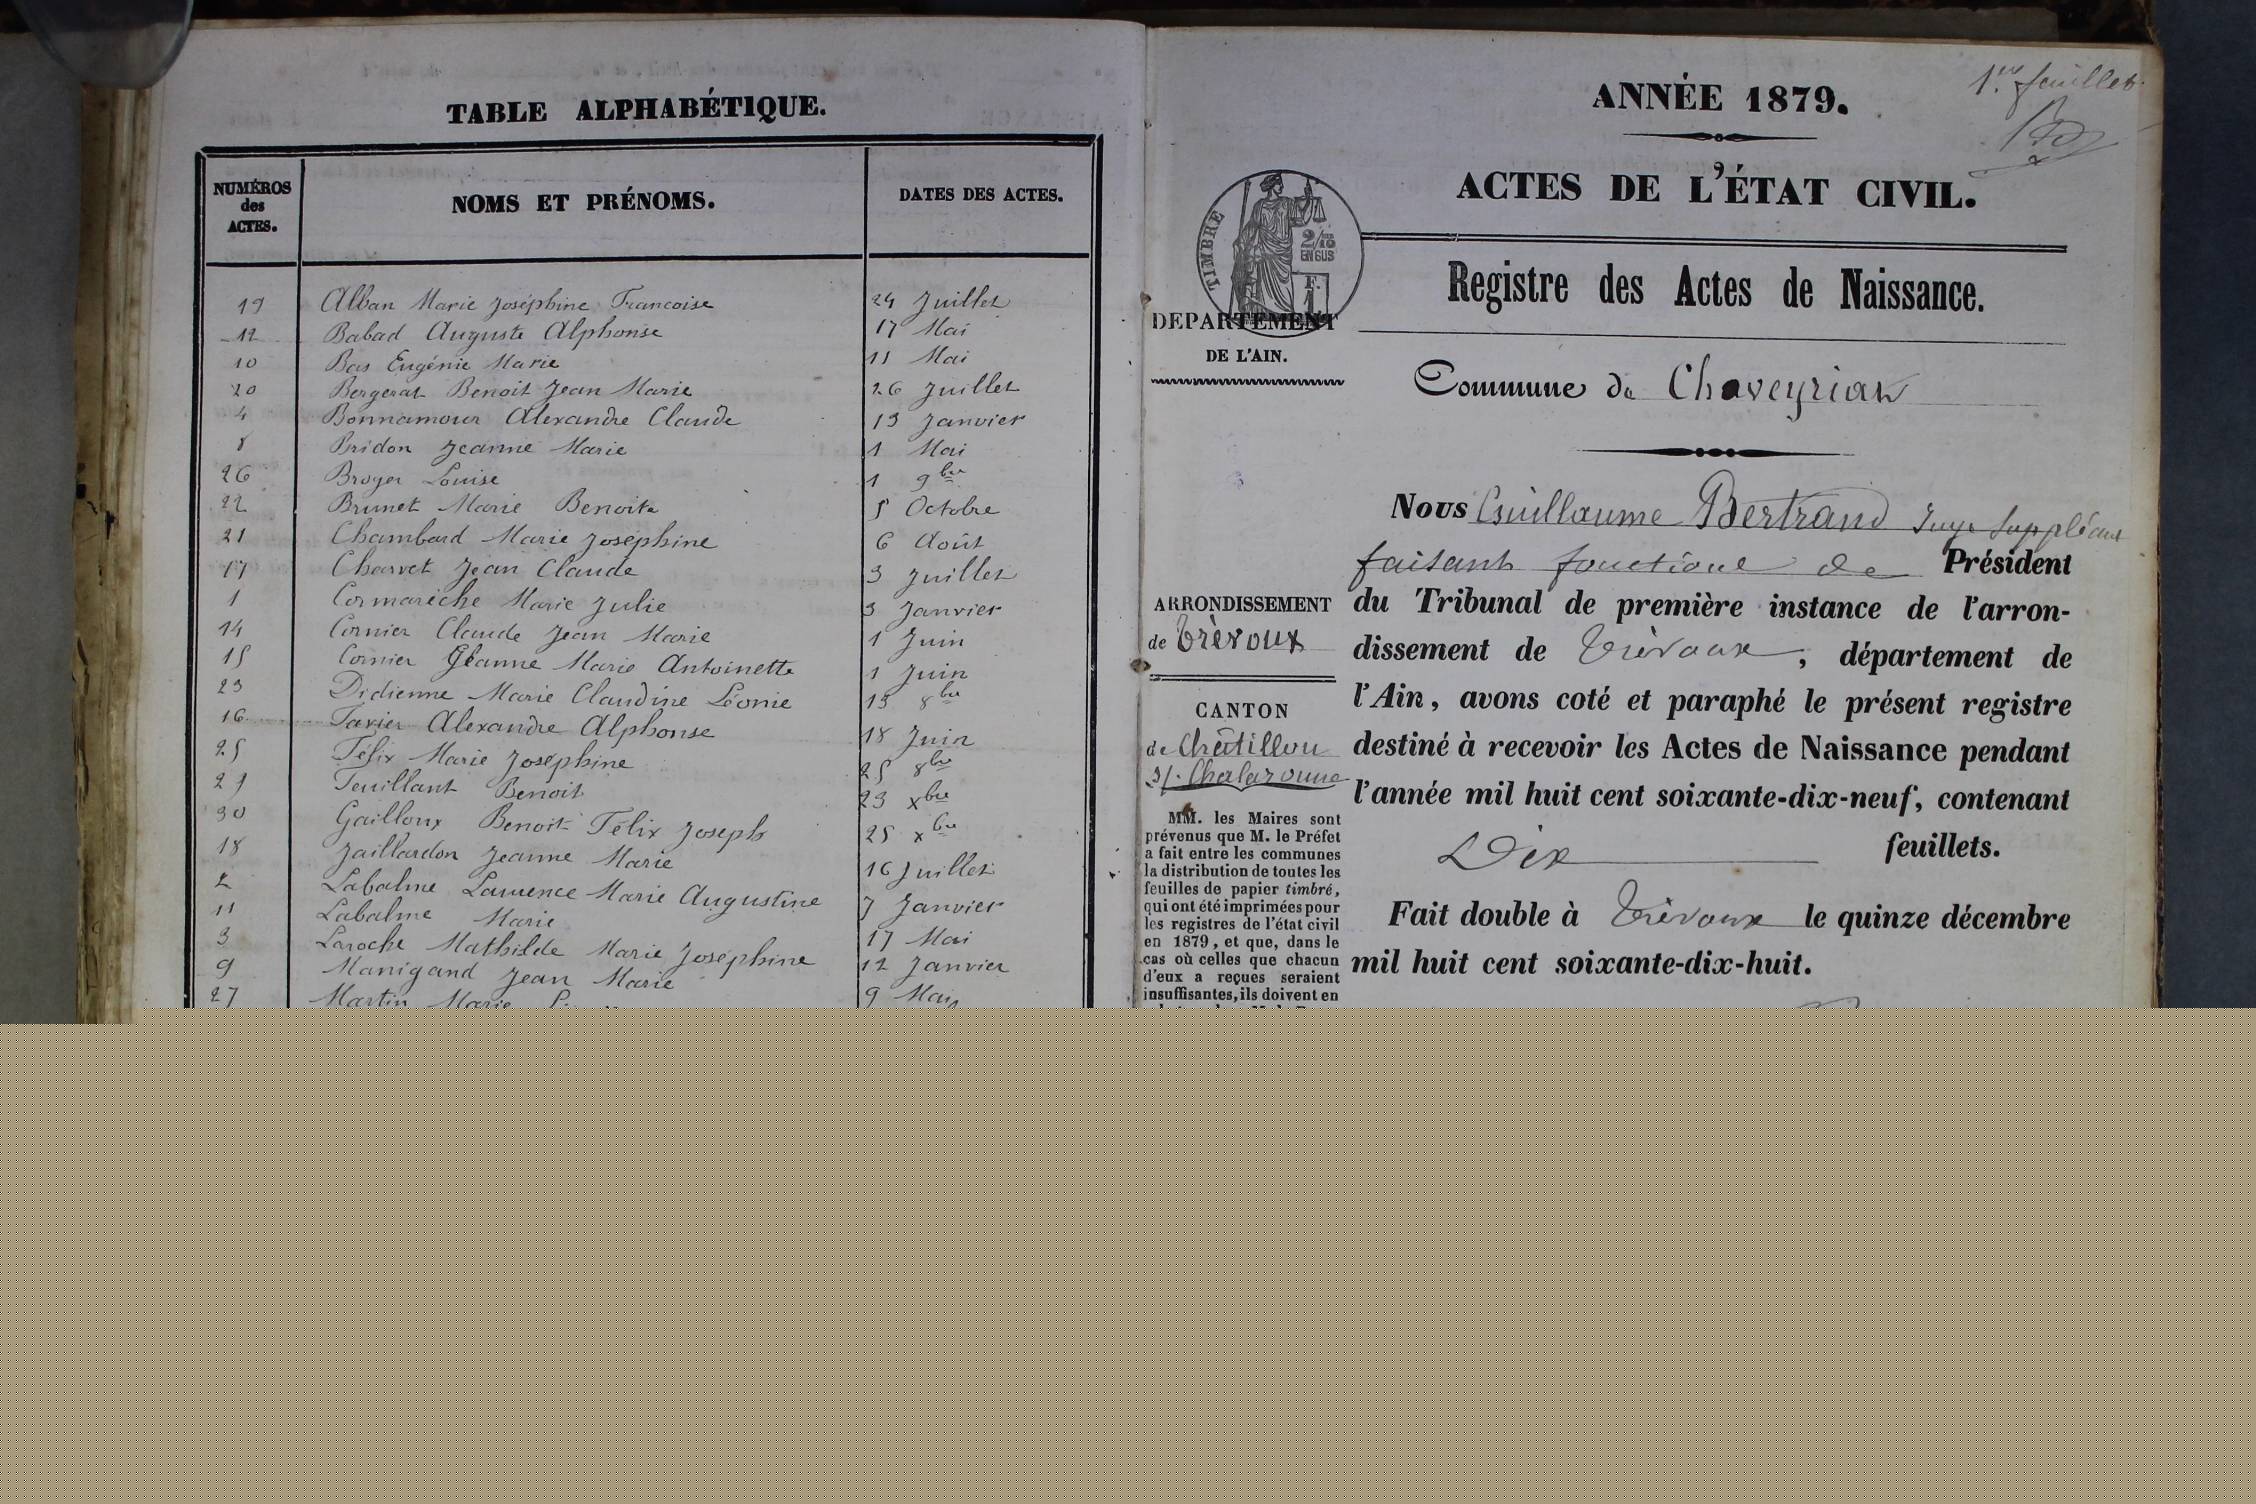 TABLE ALPHABÉTIQUE.
NUMÉROS des ACTES. NOMS ET PRÉNOMS. DATES DES ACTES.
19 Alban Marie Joséphine Francoise 24 Juillet
12 Babad Auguste Alphonse 17 Mai
10 Bas Eugénie Marie 11 Mai
20 Bergerat Benoit Jean Marie 26 Juillet
4 Bonnamour Alexandre Claude 13 Janvier
8 Bridon Jeanne Marie 1 Mai
26 Broyer Louise 1 9bre
22 Brunet Marie Benoite 5 Octobre
21 Chambard Marie Joséphine 6 Août
17 Charvet Jean Claude 3 Juillet
1 Cormarèche Marie Julie 3 Janvier
14 Cornier Claude Jean Marie 1 Juin
15 Cornier Jeanne Marie Antoinette 1 Juin
23 Didienne Marie Claudine Léonie 13 8bre
16 Favier Alexandre Alphonse 18 Juin
25 Félix Marie Joséphine 25 8bre
29 Feuillant Benoit 23 xbre
30 Gailloux Benoit Félix Joseph 25 xbre
18 Jaillardon Jeanne Marie 16 Juillet
2 Labalme Laurence Marie Augustine 7 Janvier
11 Labalme Marie 17 Mai
3 Laroche Mathilde Marie Joséphine 12 Janvier
9 Manigand Jean Marie 9 Mai
27 Martin Marie
1er feuillet.
ANNÉE 1879.
ACTES DE L'ÉTAT CIVIL.
TIMBRE
2/10
EN SUS
F.
1
Registre des Actes de Naissance.
DEPARTEMENT
DE L'AIN.
Commune de Chaveyriat
Nous Guillaume Bertrand Juge Suppléant
faisant fonctions de Président
du Tribunal de première instance de l'arron-
dissement de Trévoux, département de
l'Ain, avons coté et paraphé le présent registre
destiné à recevoir les Actes de Naissance pendant
l'année mil huit cent soixante-dix-neuf, contenant
Dix feuillets.
Fait double à Trévoux le quinze décembre
mil huit cent soixante-dix-huit.
ARRONDISSEMENT
de Trévoux
CANTON
de Châtillon
s/. Chalaronne
MM. les Maires sont
prévenus que M. le Préfet
a fait entre les communes
la distribution de toutes les
feuilles de papier timbré,
qui ont été imprimées pour
les registres de l'état civil
en 1879, et que, dans le
cas où celles que chacun
d'eux a reçues seraient
insuffisantes, ils doivent en